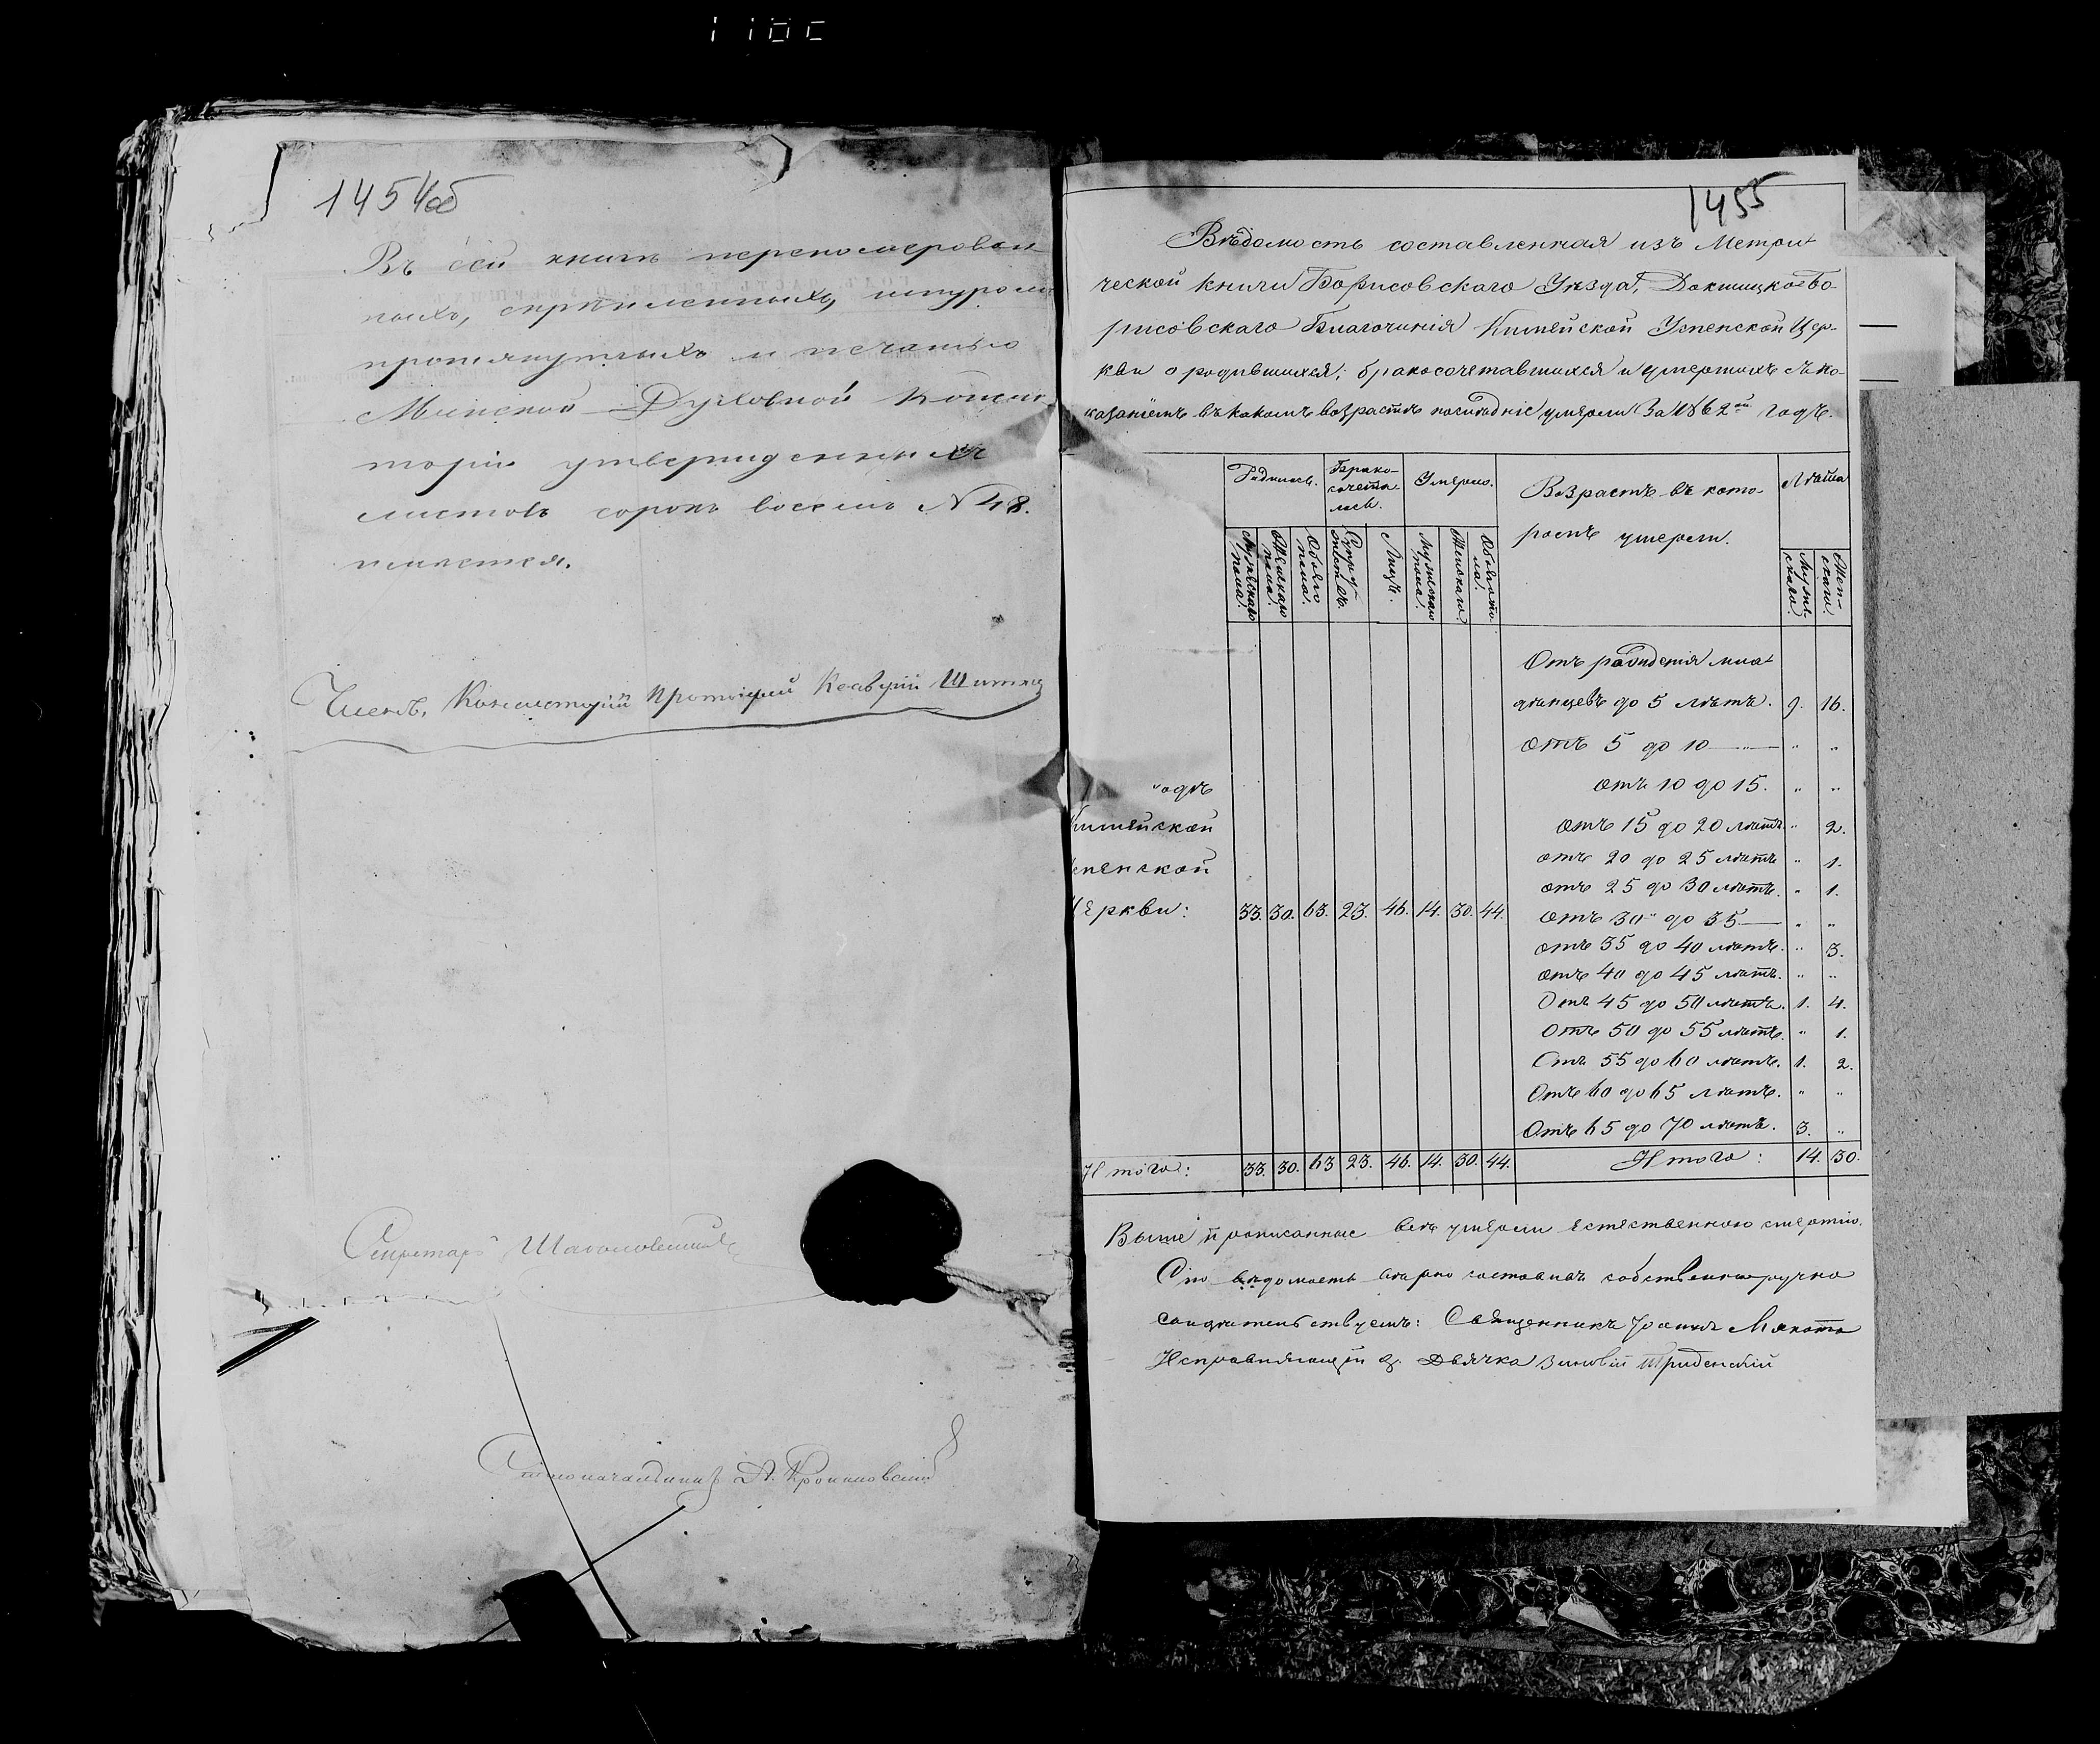 1454об
Въ сей книгѣ перепомерован
ныхъ, скрѣпленныхъ, шнуромъ
протянутыхъ и печатью
Минской Духовной Консис
торіи утвержденныхъ
листовъ сорокъ восемь N 48.
имѣется.
Членъ, Консисторіи Протоіерей
Секретарь
Столоначальникъ
1455
Вѣдомость составленная изъ Метри
ческой книги Борисовскаго Уѣзда, Докшицко-Бо-
рисовскаго Благочинія Китейской Успенской Цер-
кви о родившихся; бракосочетавшихся и умершихъ съ по-
казаніемъ въ какомъ возрастѣ послѣдніе умерли За 1862ой годъ.
Родилось. Брако- Умерло. Возрастъ въ кото- Лѣта
сочета-
лось. ромъ умерли.
Мужескаго пола. Женскаго пола. Обоего пола. Супру- жествъ. Лицъ. Мужескаго пола. Женскаго. Обоего по- ла. Муже- скаго. Жен- скаго.
Отъ рожденія мла
денцевъ до 5 лѣтъ. 9. 16.
отъ 5 до 10 — " — " "
годъ отъ 10 до 15. " "
Китейской отъ 15 до 20 лѣтъ. " 2.
спенской отъ 20 до 25 лѣтъ " 1.
отъ 25 до 30 лѣтъ. " 1.
Церкви: 33. 30. 63. 23. 46. 14. 30. 44. отъ 30 до 35 — " "
отъ 35 до 40 лѣтъ. " 3.
отъ 40 до 45 лѣтъ. " "
Отъ 45 до 50 лѣтъ. 1. 4.
Отъ 50 до 55 лѣтъ. " 1.
Отъ 55 до 60 лѣтъ. 1. 2.
Отъ 60 до 65 лѣтъ. " "
Отъ 65 до 70 лѣтъ. 3. "
Итого: 33. 30. 63 23. 46. 14. 30. 44. Итого: 14. 30.
Выше прописанные всѣ умерли естественною смертію.
Сію вѣдомость вѣрно составилъ собственноручно
свидѣтельствуемъ: Священникъ Іоаннъ
Исправляющій д. Дьячка Зиновій